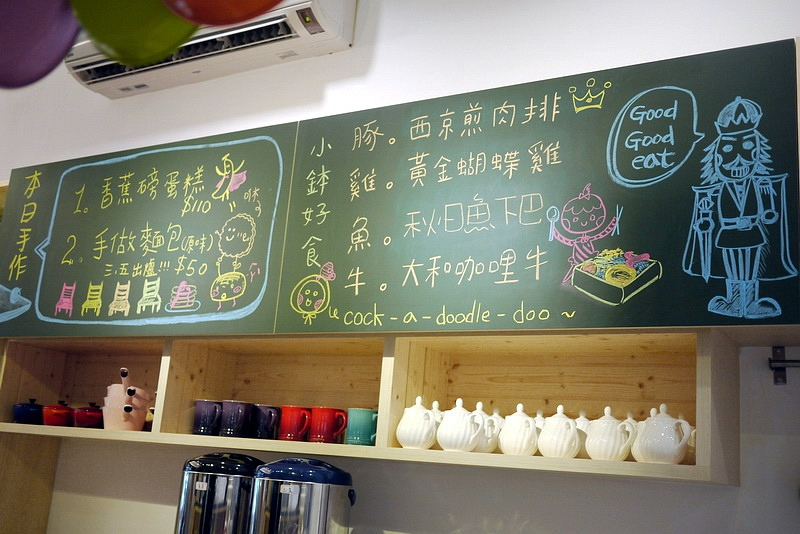 本日手作
1。香蕉磅蛋糕
$110
咻～
2。手做麵包(原味)
三.五出爐!!! $50
小鉢好食
豚。西京煎肉排
雞。黃金蝴蝶雞
魚。秋日魚下巴
牛。大和咖哩牛
cock-a-doodle-doo ~
Good
Good
eat